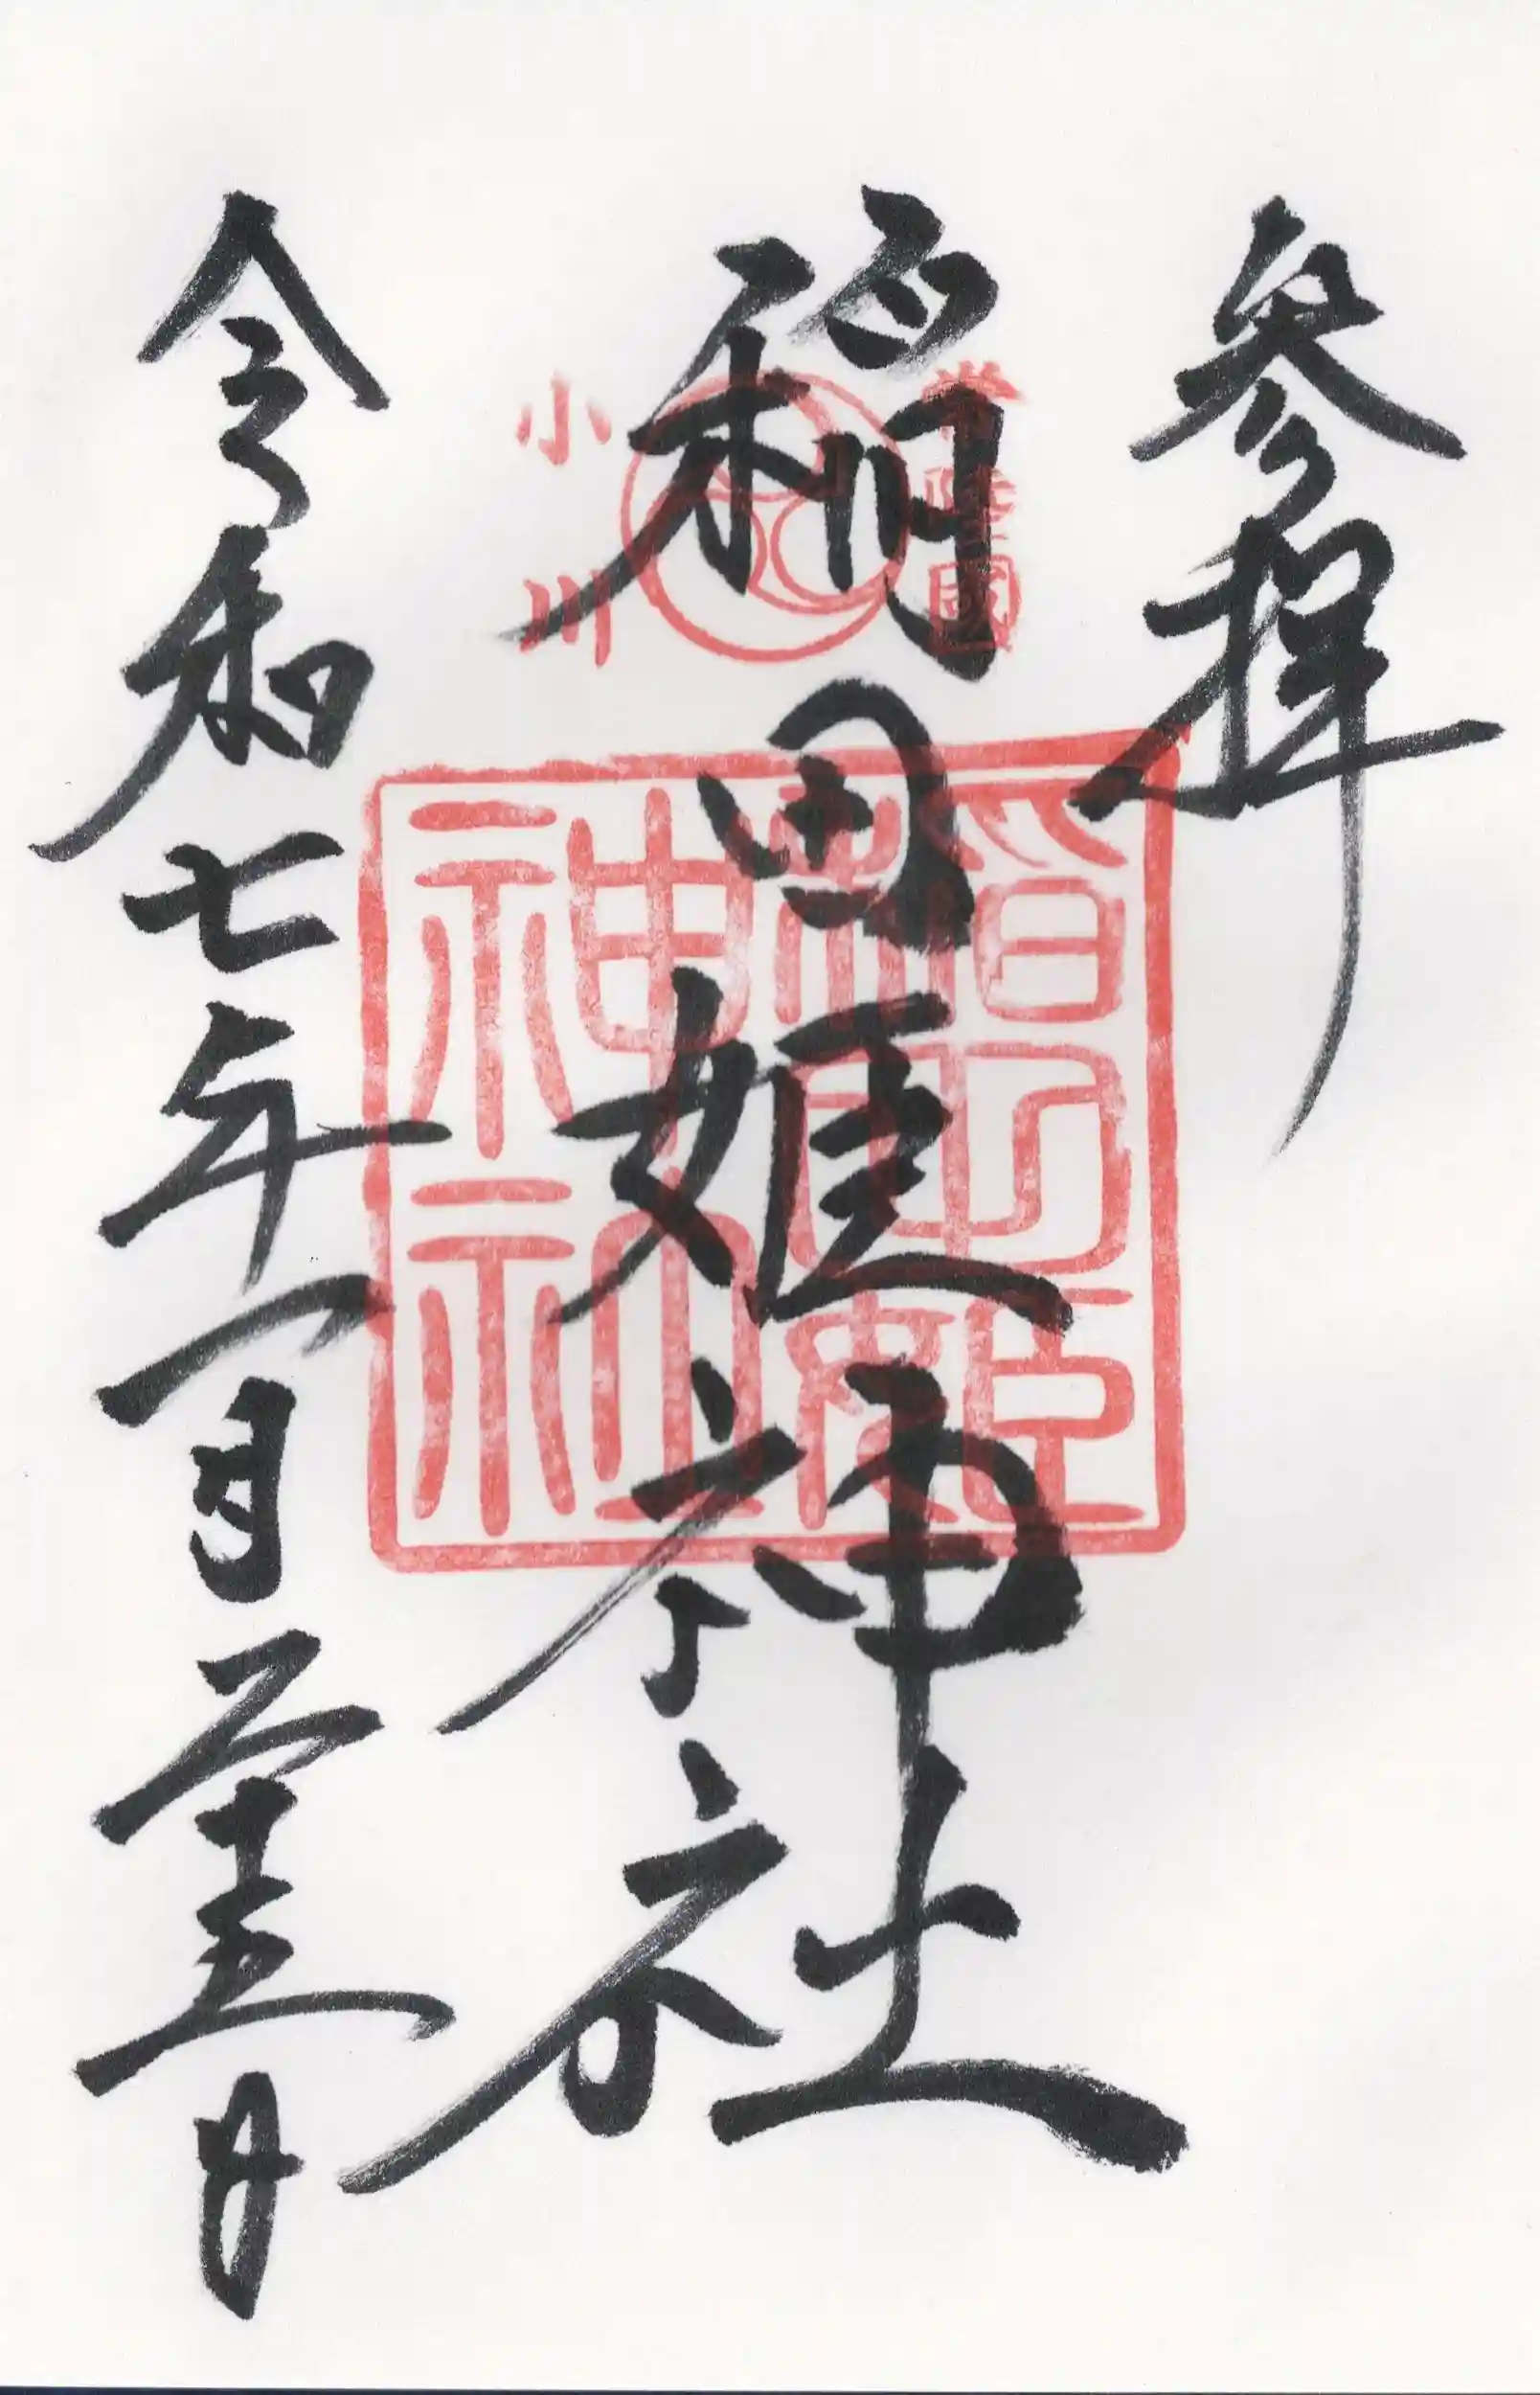 参拝
常陸國
稲田姫神社
小川
稲田姫
神社
令和七年一月二十五日